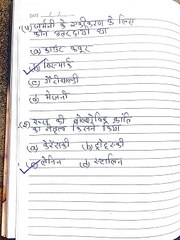 (4) जर्मनी के एकीकरण के लिए
कौन उत्तरदायी था
(a) काउंट कावूर
(b) बिस्मार्क
(c) गैरीबाल्डी
(d) मेजनी
(5) रूस की बोल्शेविक क्रांति
का नेतृत्व किसने किया
(a) केरेंसकी (b) ट्रोटस्की
(c) लेनिन (d) स्टालिन